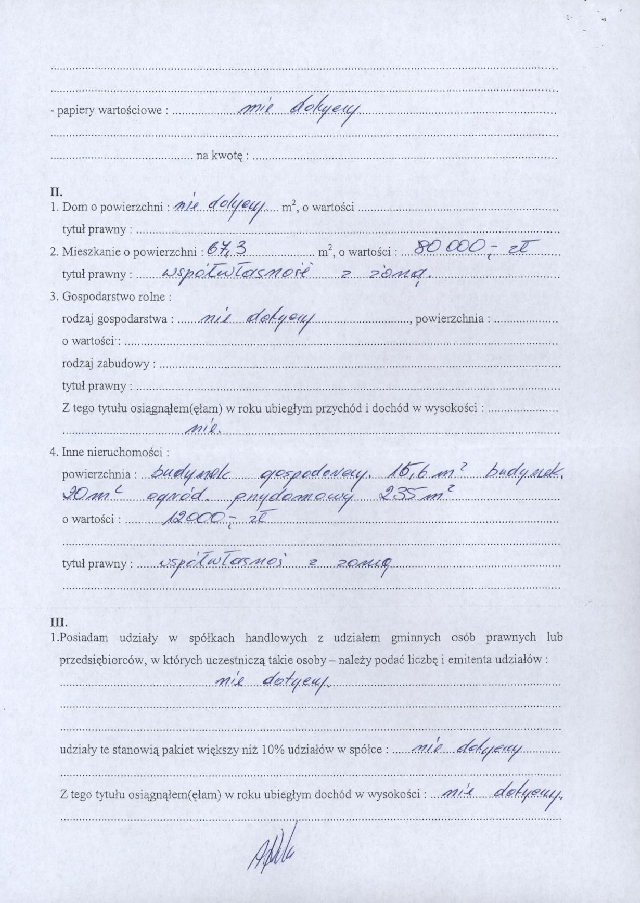 - papiery wartościowe : nie dotyczy
na kwotę :
II.
1. Dom o powierzchni : nie dotyczy m², o wartości
tytuł prawny :
2. Mieszkanie o powierzchni : 67,3 m², o wartości : 80 000,- zł
tytuł prawny : współwłasność z żoną.
3. Gospodarstwo rolne :
rodzaj gospodarstwa : nie dotyczy, powierzchnia :
o wartości :
rodzaj zabudowy :
tytuł prawny :
Z tego tytułu osiągnąłem(ęłam) w roku ubiegłym przychód i dochód w wysokości :
nie.
4. Inne nieruchomości :
powierzchnia : budynek gospodarczy. 15,6 m² budynek.
20 m² ogród przydomowy 235 m²
o wartości : 12000,- zł
tytuł prawny : współwłasnoś z żoną
III.
1.Posiadam udziały w spółkach handlowych z udziałem gminnych osób prawnych lub
przedsiębiorców, w których uczestniczą takie osoby – należy podać liczbę i emitenta udziałów :
nie dotyczy.
udziały te stanowią pakiet większy niż 10% udziałów w spółce : nie dotyczy
Z tego tytułu osiągnąłem(ęłam) w roku ubiegłym dochód w wysokości : nie dotyczy.